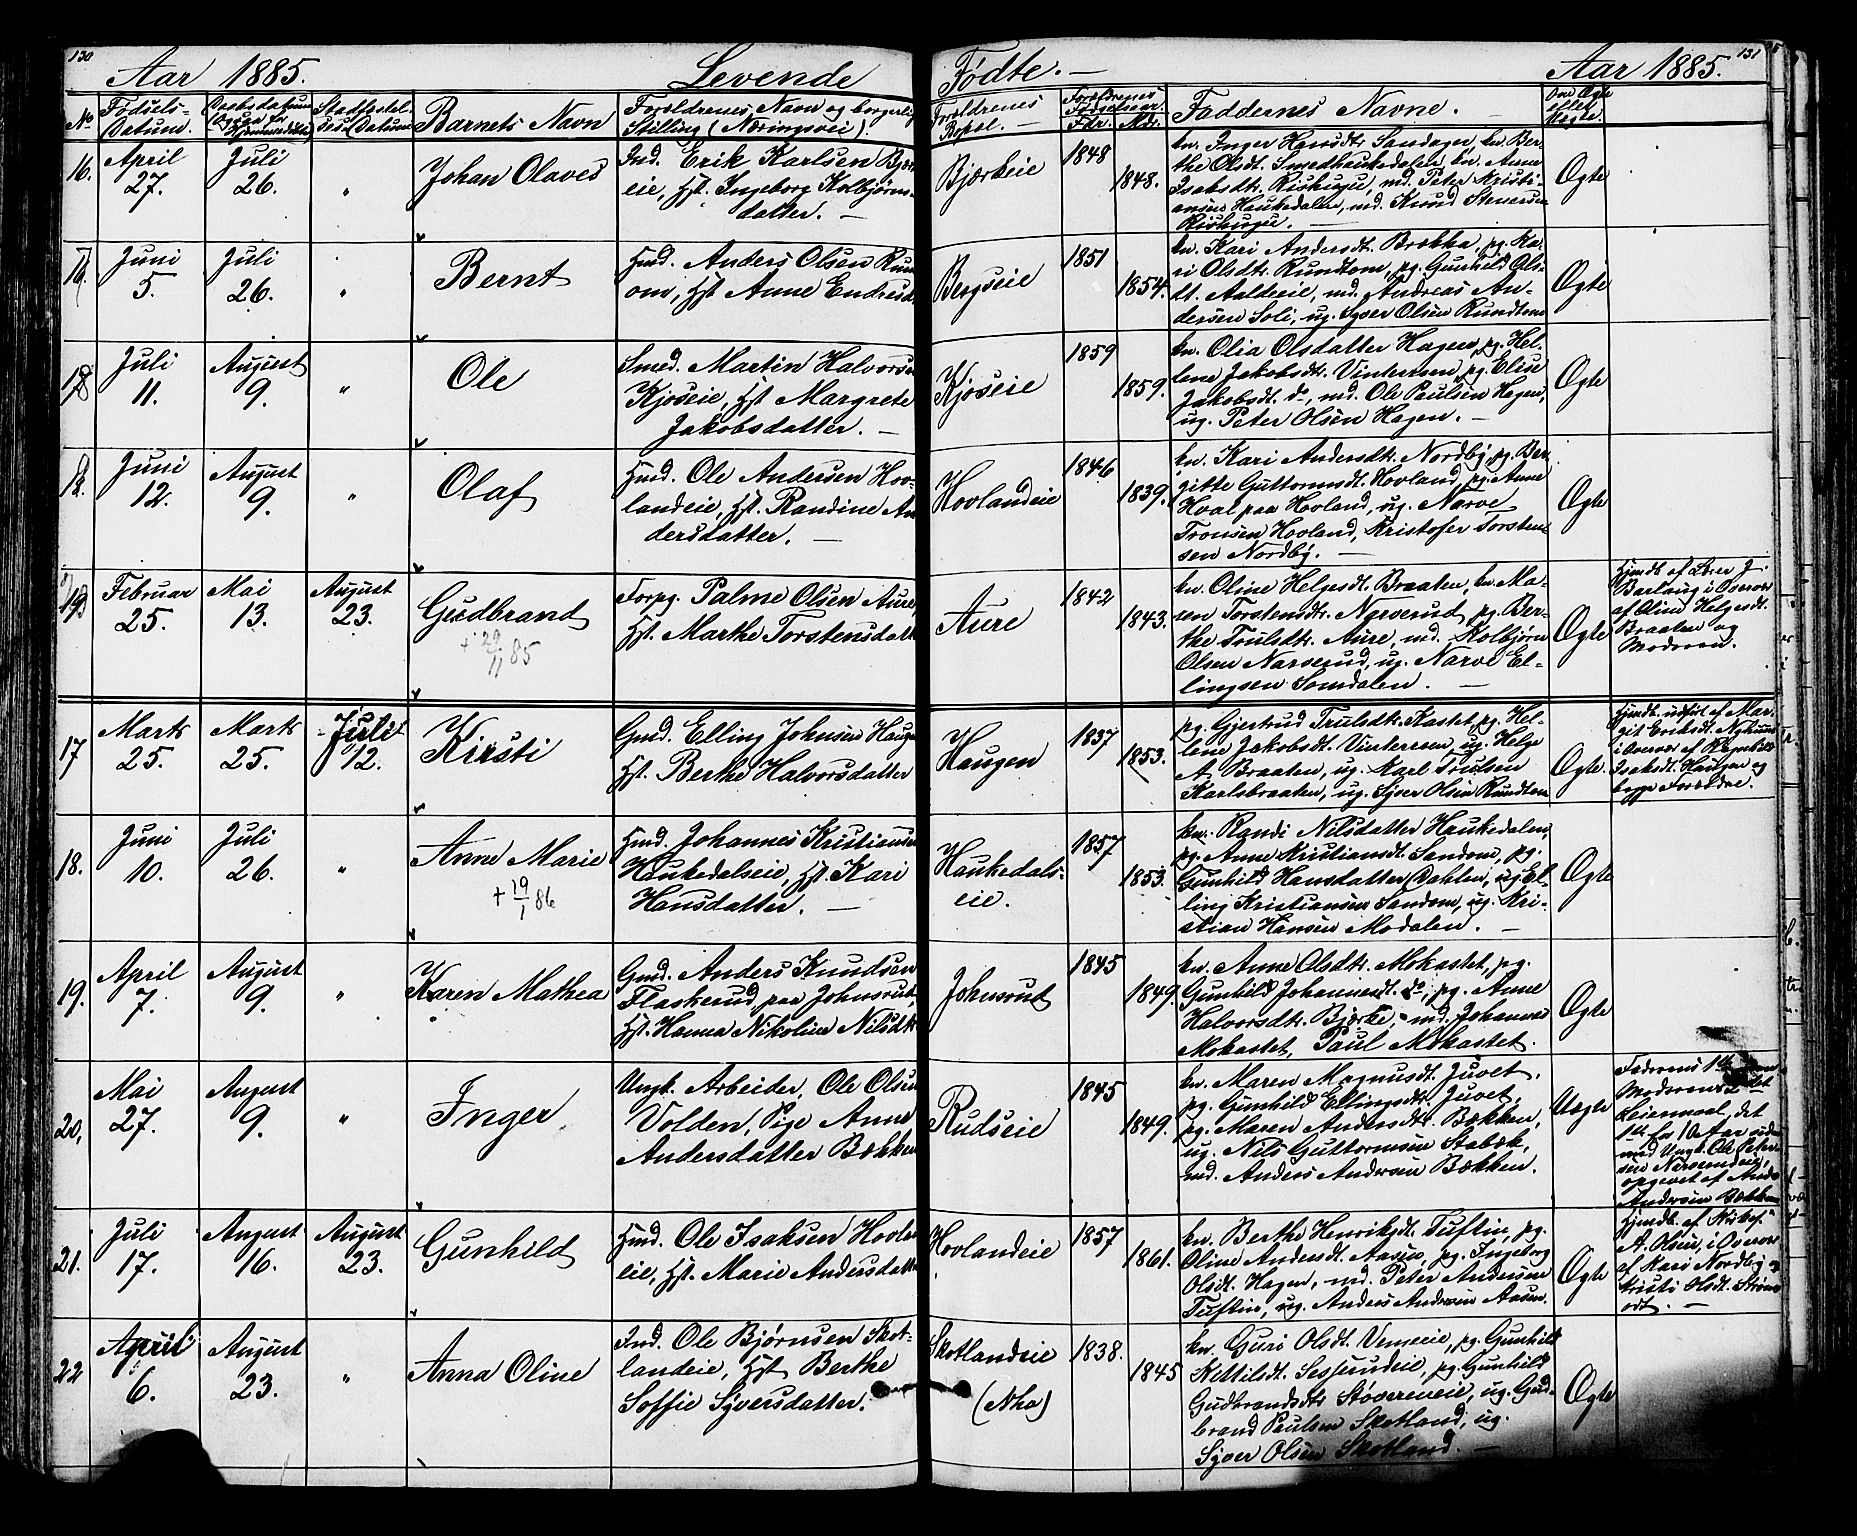 130
Aar 1885. Levende Fødte. — Aar 1885. 131
No Fødsels-Datum. Daabsdatum Stadfæstelses-Datum Barnets Navn Forældrenes Navn og borgerlig Stilling (Næringsvei) Forældrenes Bopæl. Forældrenes Fødselsaar. Fdr. Mdr. Faddernes Navne. Om Ægte eller Uægte.
16. April 27. Juli 26. " Johan Olaves
Ind. Erik Karlsen Bjør-
eie, Hst. Ingeborg Kolbjørns-
datter. —
Bjørkeie 1848 1848.
kv. Inger Hansdtr. Sandager, kv. Ber-
the Olsdt. Smedhaukedalen, kv. Anne
Isaksdtr. Rishugu, md. Peter Kristi-
ansen Haukedalen, md. Knud Stenersen
Rishugu. —
Ægte
Juni 5. Juli 26. " Bernt
Hmd. Anders Olsen Run
om, Hst. Anne Endresdt
Bergseie 1851 1854.
kv. Kari Andersdt. Brekka, pg. Ka-
ri Olsdtr. Rundtom, pg. Gunhild Ols-
dt. Aaldeeie, md. Andreas An-
dersen Soli, ug. Syver Olsen Rundtom
Ægte
18 Juli 11. August 9. " Ole
Smed. Martin Halvorsen
Kjoseie, Hst. Margrete
Jakobsdatter. —
Kjoseie 1859 1859.
kv. Olia Olsdatter Hagen, pg. Hel-
lene Jakobsdtr. Vinteren, pg. Elise
Jakobsdt. do, md. Ole Paulsen Hagen,
ug. Peter Olsen Hagen. —
Ægte
Juni 12. August 9. " Olaf
Hmd. Ole Andersen Hov-
landeie, Hst. Randine An
dersdatter. —
Hovlandeie 1846 1839.
kv. Kari Andersdtr. Nordby, pg. Ber-
gitte Guttormsdt. Hovland, pg. Anne
Hval paa Hovland, ug. Narve
Tronsen Hovland, Kristofer Torsten-
sen Nordby. —
Ægte
Februar 25. Mai 13. August 23. Gudbrand
+ 29/11 85
Forpg. Palme Olsen Aure,
Hst. Marthe Torstensdatt
Aure 1842 1843.
kv. Oline Helgesdt. Braaten, kv. Ma-
ren Torstensdtr. Narverud, pg. Ber-
the Trulsdtr. Aure, md. Kolbjørn
Olsen Narverud, ug. Narve El-
lingsen Somdalen. —
Ægte
Hjmdt. af Lærer J.
Berlaug i Overvær
af Oline Helgesdt.
Braaten og
Moderen.
17 Marts 25. Marts 25. Juli 12. Kirsti
Gmd. Elling Johnsen Haugen
Hst. Berthe Halvorsdatter
Haugen 1837 1853.
pg. Gjertrud Trulsdtr. Kastet, pg. Hel-
lene Jakobsdt. Vinteren, ug. Helge
A. Braaten, ug. Karl Trulsen
Karlsbraaten, ug. Syver Olsen Rundtom
Ægte.
Hjmdt. udført af Mar-
git Eriksdt. Nyhuus
i Overvær af Ragnhild
Isaksdt. Haugen og
begge Forældre.
18. Juni 10. Juli 26. " Anne Marie
+ 19/1 86
Hmd. Johannes Kristiansen
Haukedalseie, Hst. Kari
Hansdatter. —
Haukedals-
eie. 1857 1853.
kv. Randi Nilsdatter Haukedalen,
pg. Anne Kristiansdt. Sandom, pg.
Gunhild Hansdatter Dahlen, ug. El-
ling Kristiansen Sandom, ug. Kri-
stian Hansen Modalen. —
Ægte
19. April 7. August 9. " Karen Mathea
Gmd. Anders Knudsen
Flaskerud paa Johnsrud,
Hst. Hanna Nikoline Nilsdtr
Johnsrut 1845 1849.
kv. Anne Olsdtr. Mokastet, pg.
Gunhild Johannesdt. do, pg. Anne
Halvorsdtr. Bjørke, md. Johannes
Mokastet, Paul Mokastet.
Ægte
20, Mai 27. August 9. " Inger
Ungk. Arbeider, Ole Olsen
Volden, Pige Anne
Andersdatter Bækken
Rudseie 1845 1849.
kv. Maren Magnusdt. Juvet,
pg. Gunhild Ellingsdtr. Juvet,
pg. Maren Andersdtr. Bækken,
ug. Nils Guttormsen Stabæk,
md. Anders Andersen Bækken.
Uægte
Faderens 1ste
Moderens 2det
Leiermaal, det
1ste for 10 Aar siden
med Ungk. Ole Peter-
sen Narverudeie,
opgivet af Anders
Andersen Bækken
21. Juli 17. August 16. August 23. Gunhild
Hmd. Ole Isaksen Hovland
eie, Hst. Marie Andersdatt
Hovlandeie 1857 1861.
kv. Berthe Henriksdt. Tuftin, pg.
Oline Andersdt. Aasen, pg. Ingeborg
Olsdt. Hagen, md. Peter Andersen
Tuftin, ug. Anders Andersen Aasen.
Ægte
Hjmdt. af Kirkes.
A. Olsen, i Overvær
af Kari Nordby og
Kristi Olsdt. Strøm-
odt. —
22 April 6. August 23. " Anna Oline
Ind. Ole Bjørnsen Skot-
landeie, Hst. Berthe
Soffie Syversdatter.
Skotlandeie
(Nho) 1838. 1845
kv. Guri Olsdt. Vemeeie, pg. Gunhild
Kettilsdt. Sesserudeie, pg. Gunhild
Gudbrandsdtr. Støvereneie, ug. Gud-
brand Paulsen Skotland, ug.
Syver Olsen Skotland. —
Ægte